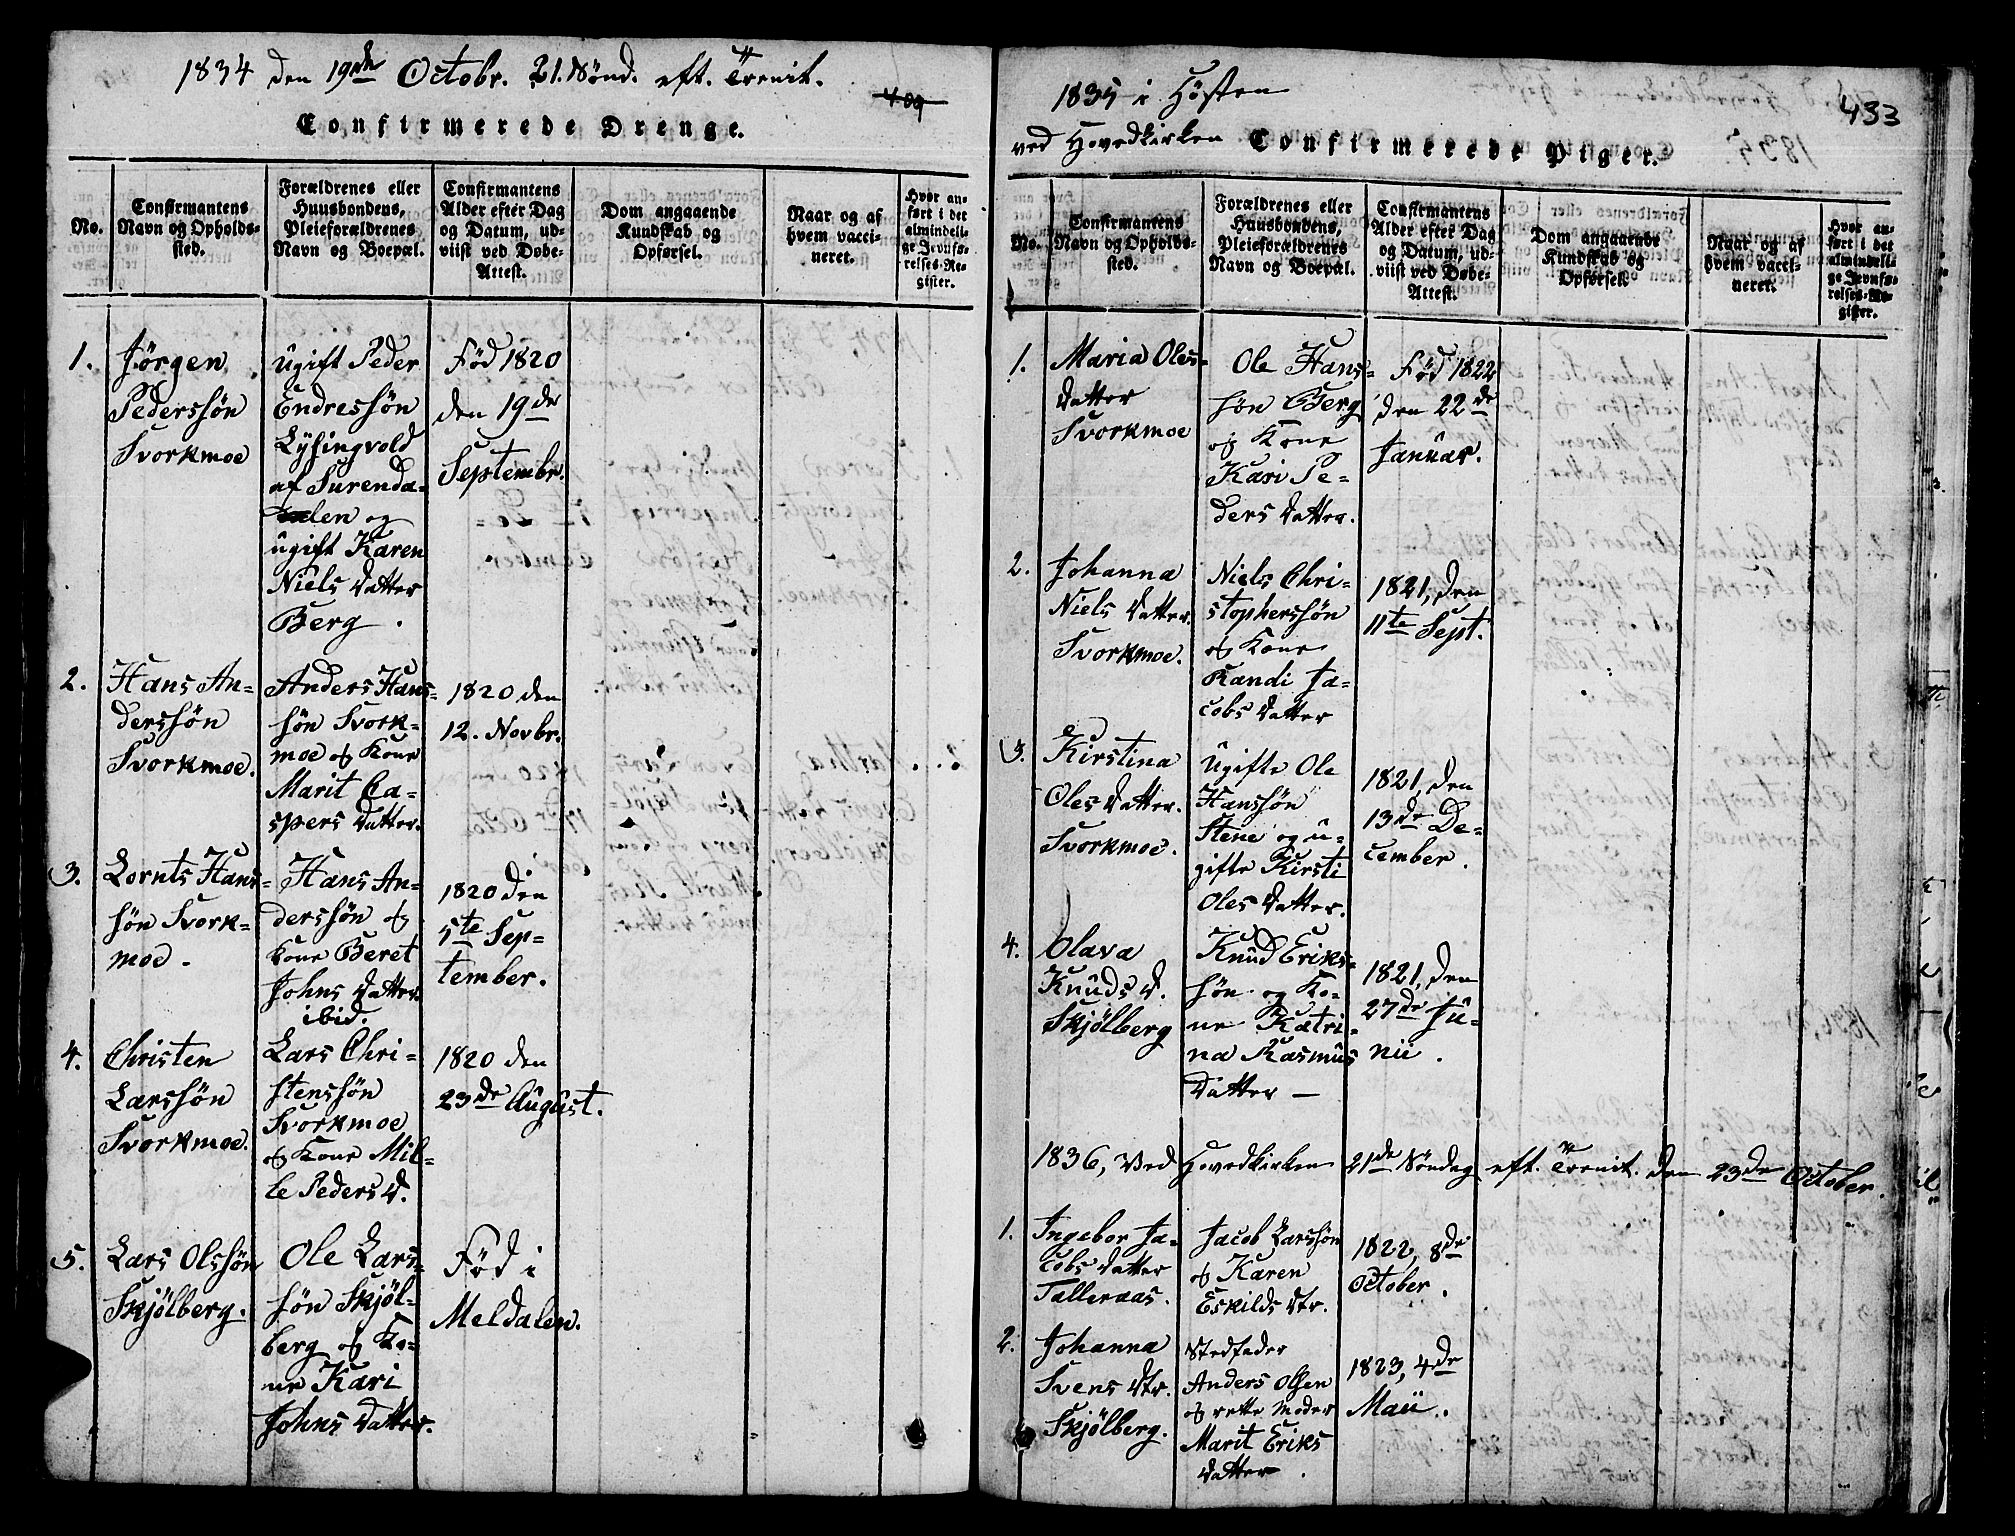 1834 den 19de Octobr. 21. Sønd. eft. Trenit.
409
Confirmerede Drenge.
No.
Confirmantens
Navn og Opholds-
sted.
Forældrenes eller
Huusbondens,
Pleieforældrenes
Navn og Boepæl.
Confirmantens
Alder efter Dag
og Datum, ud-
viist ved Døbe-
Attest.
Dom angaaende
Kundskab og
Opførsel.
Naar og af
hvem vacci-
neret.
Hvor an-
ført i det
almindeli-
ge Jevnfø-
relses-Re-
gister.
1.
Jørgen
Pederssøn
Svorkmoe
ugift Peder
Endressøn
Lysingvold
af Surenda-
len og
ugift Karen
Niels datter
Berg.
Fød 1820
den 19de
Septembr.
2.
Hans An-
derssøn
Svorkmoe.
Anders Hans-
søn Svork-
moe og Kone
Marit Ca-
spers datter.
1820 den
12. Novbr.
3.
Lornts Hans-
søn Svork-
moe.
Hans An-
derssøn og
Kone Beret
Johns datter
ibid.
1820 den
5te Sep-
tember.
4.
Christen
Larssøn
Svorkmoe.
Lars Chri-
stenssøn
Svorkmoe
og Kone Mil-
le Peders d.
1820 den
23de August.
5.
Lars Olssøn
Skjølberg.
Ole Lars-
søn Skjøl-
berg og Ko-
ne Kari
Johns datter.
Fød i
Meldalen.
1835 i Høsten
ved Hovedkirken
433
Confirmerede Piger.
No.
Confirmantens
Navn og Opholds-
sted.
Forældrenes eller
Huusbondens,
Pleieforældrenes
Navn og Boepæl.
Confirmantens
Alder efter Dag
og Datum, ud-
viist ved Døbe-
Attest.
Dom angaaende
Kundskab og
Opførsel.
Naar og af
hvem vacci-
neret.
Hvor an-
ført i det
almindeli-
ge Jevnfø-
relses-Re-
gister.
1.
Maria Oles-
datter
Svorkmoe
Ole Hans-
søn Berg
og Kone
Kari Pe-
ders datter.
Fød 1822
den 22de
Januar.
2.
Johanna
Niels datter.
Svorkmoe.
Niels Chri-
stopherssøn
og Kone
Randi Ja-
cobs datter
1821, den
11te Sept.
3.
Kirstina
Oles datter.
Svorkmoe.
Ugifte Ole
Hanssøn
Stene og u-
gifte Kirsti
Oles datter.
1821, den
13de De-
cember.
4.
Olava
Knuds d.
Skjølberg
Knud Eriks-
søn og Ko-
ne Katri-
na Rasmus
datter —
1821, den
27de Ju-
nii.
1836, Ved Hovedkirken 21de Søndag eft. Trenit. den 23de October.
1.
Ingebor Ja-
cobs datter
Talleraas.
Jacob Larssøn
og Karen
Eskilds dtr.
1822, 8de
October.
2.
Johanna
Svens dtr.
Skjølberg.
Stedfader
Anders Olsen
og rette Moder
Marit Eriks
datter.
1823, 4de
Maii.